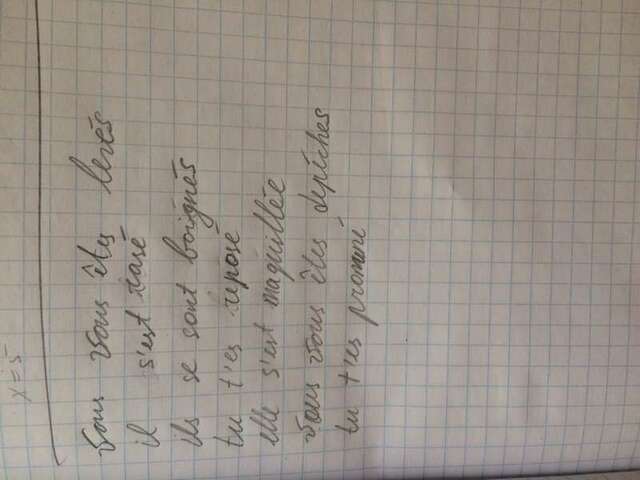 x = 5
Vous vous êtes levés
il s'est rasé
ils se sont boignés
tu t'es reposé
elle s'est maquillée
Vous vous êtes depêches
tu t'es promené